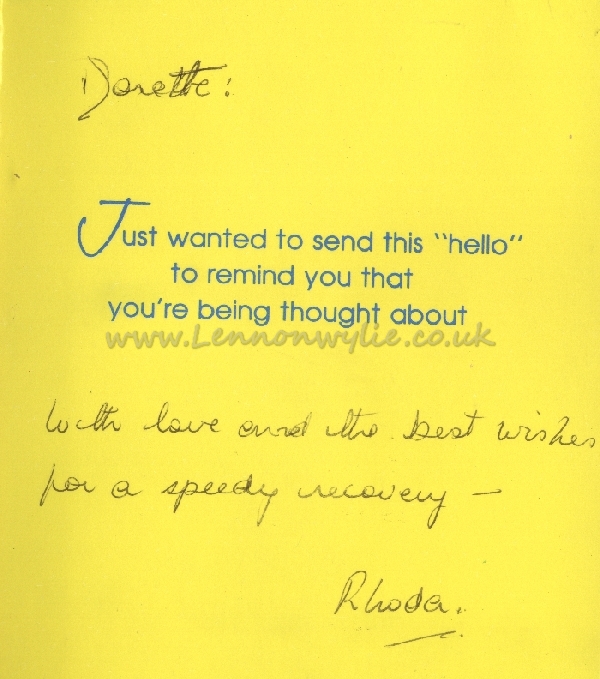 Dorette:
Just wanted to send this "hello"
to remind you that
you're being thought about
www.Lennonwylie.co.uk
With love and the best wishes
for a speedy recovery —
Rhoda.